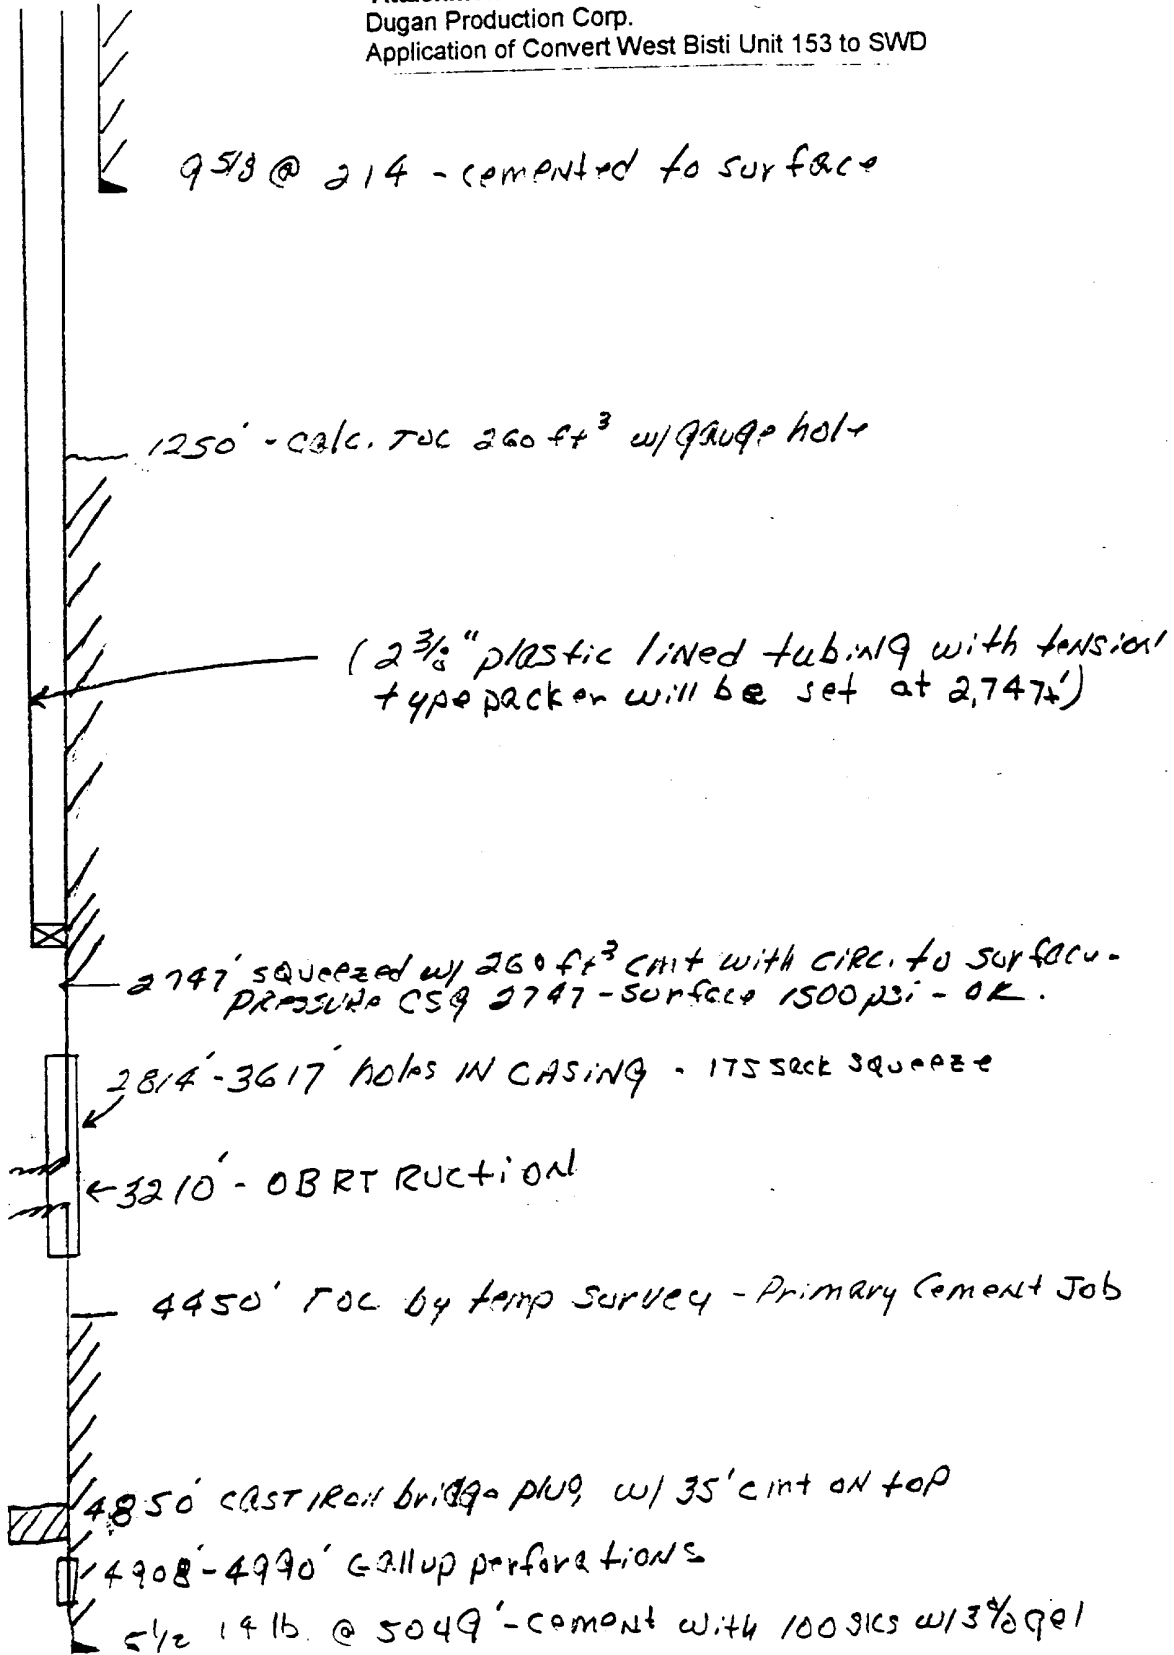 Dugan Production Corp.
Application of Convert West Bisti Unit 153 to SWD
9 5/8 @ 214 - cemented to surface
1250' - calc. TOC 260 ft³ w/ gauge hole
(2 3/8" plastic lined tubing with tension
type packer will be set at 2,747±')
2747' squeezed w/ 260 ft³ cmt with CIRC. to surface -
PRESSURE CSG 2747 - surface 1500 psi - OK.
2814' - 3617' holes IN CASING - 175 sack squeeze
3210' - OBRTRUCTION
4450' TOC by temp survey - Primary Cement Job
4850' CAST IRON bridge plug w/ 35' cmt ON top
4908' - 4990' Gallup perforations
5 1/2 14 lb. @ 5049' - cement with 100 sks w/ 3% gel